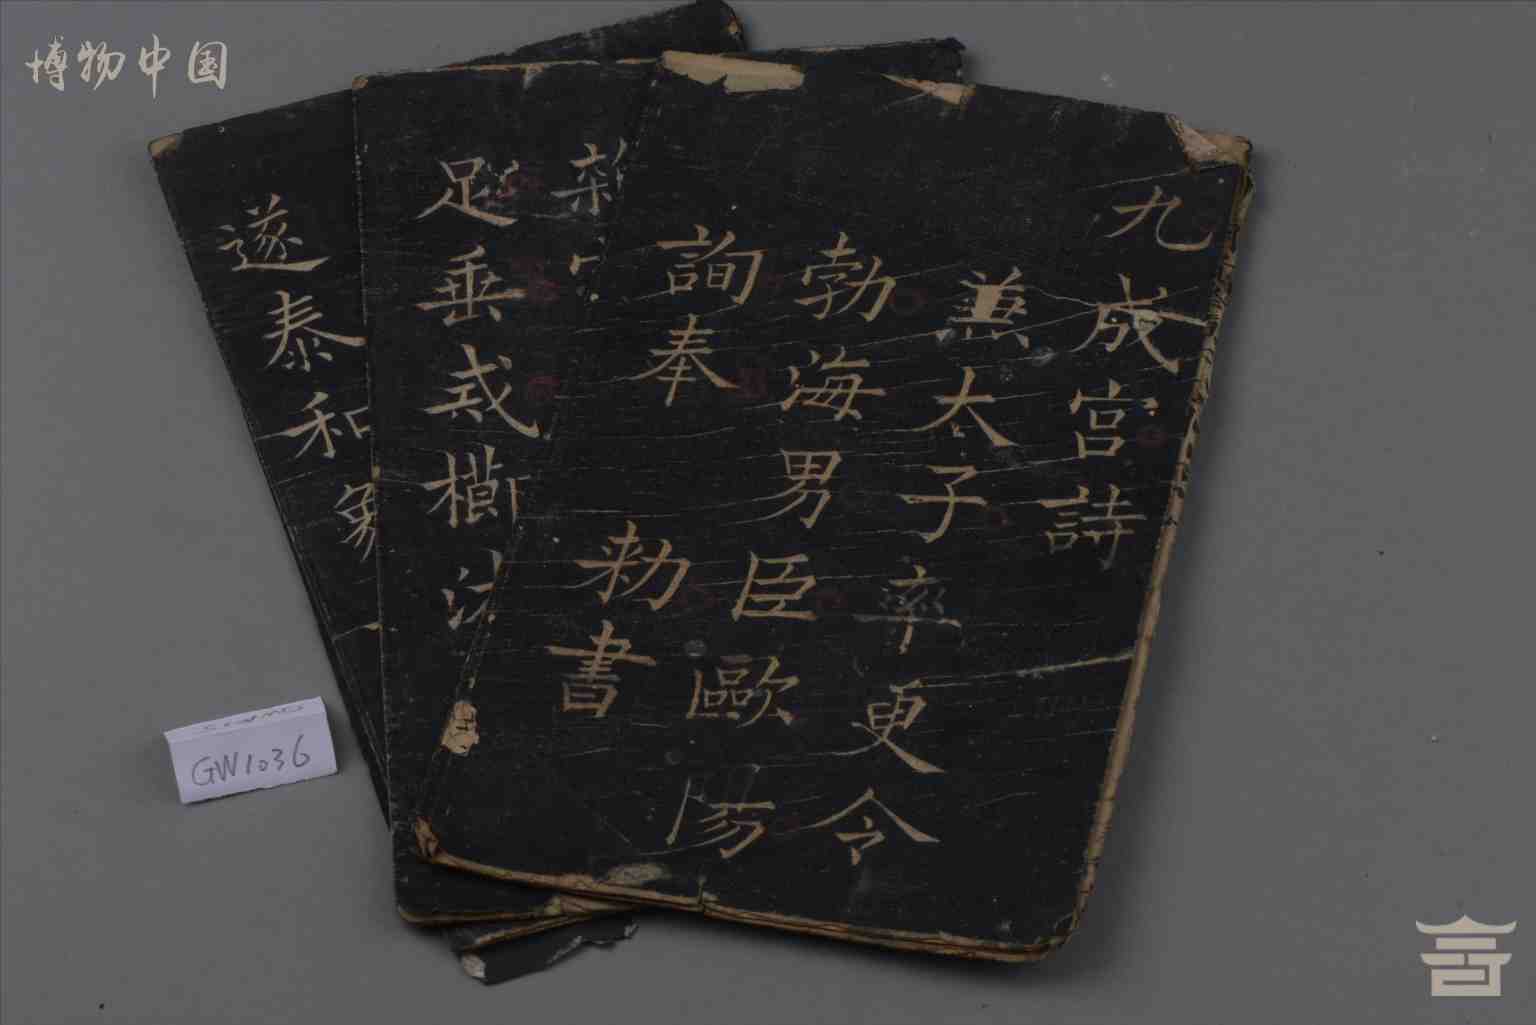 博物中国
九成宮詩
兼太子率更令
勃海男臣歐陽
詢奉 勅書
足垂戒櫛
遂泰和
GW1036